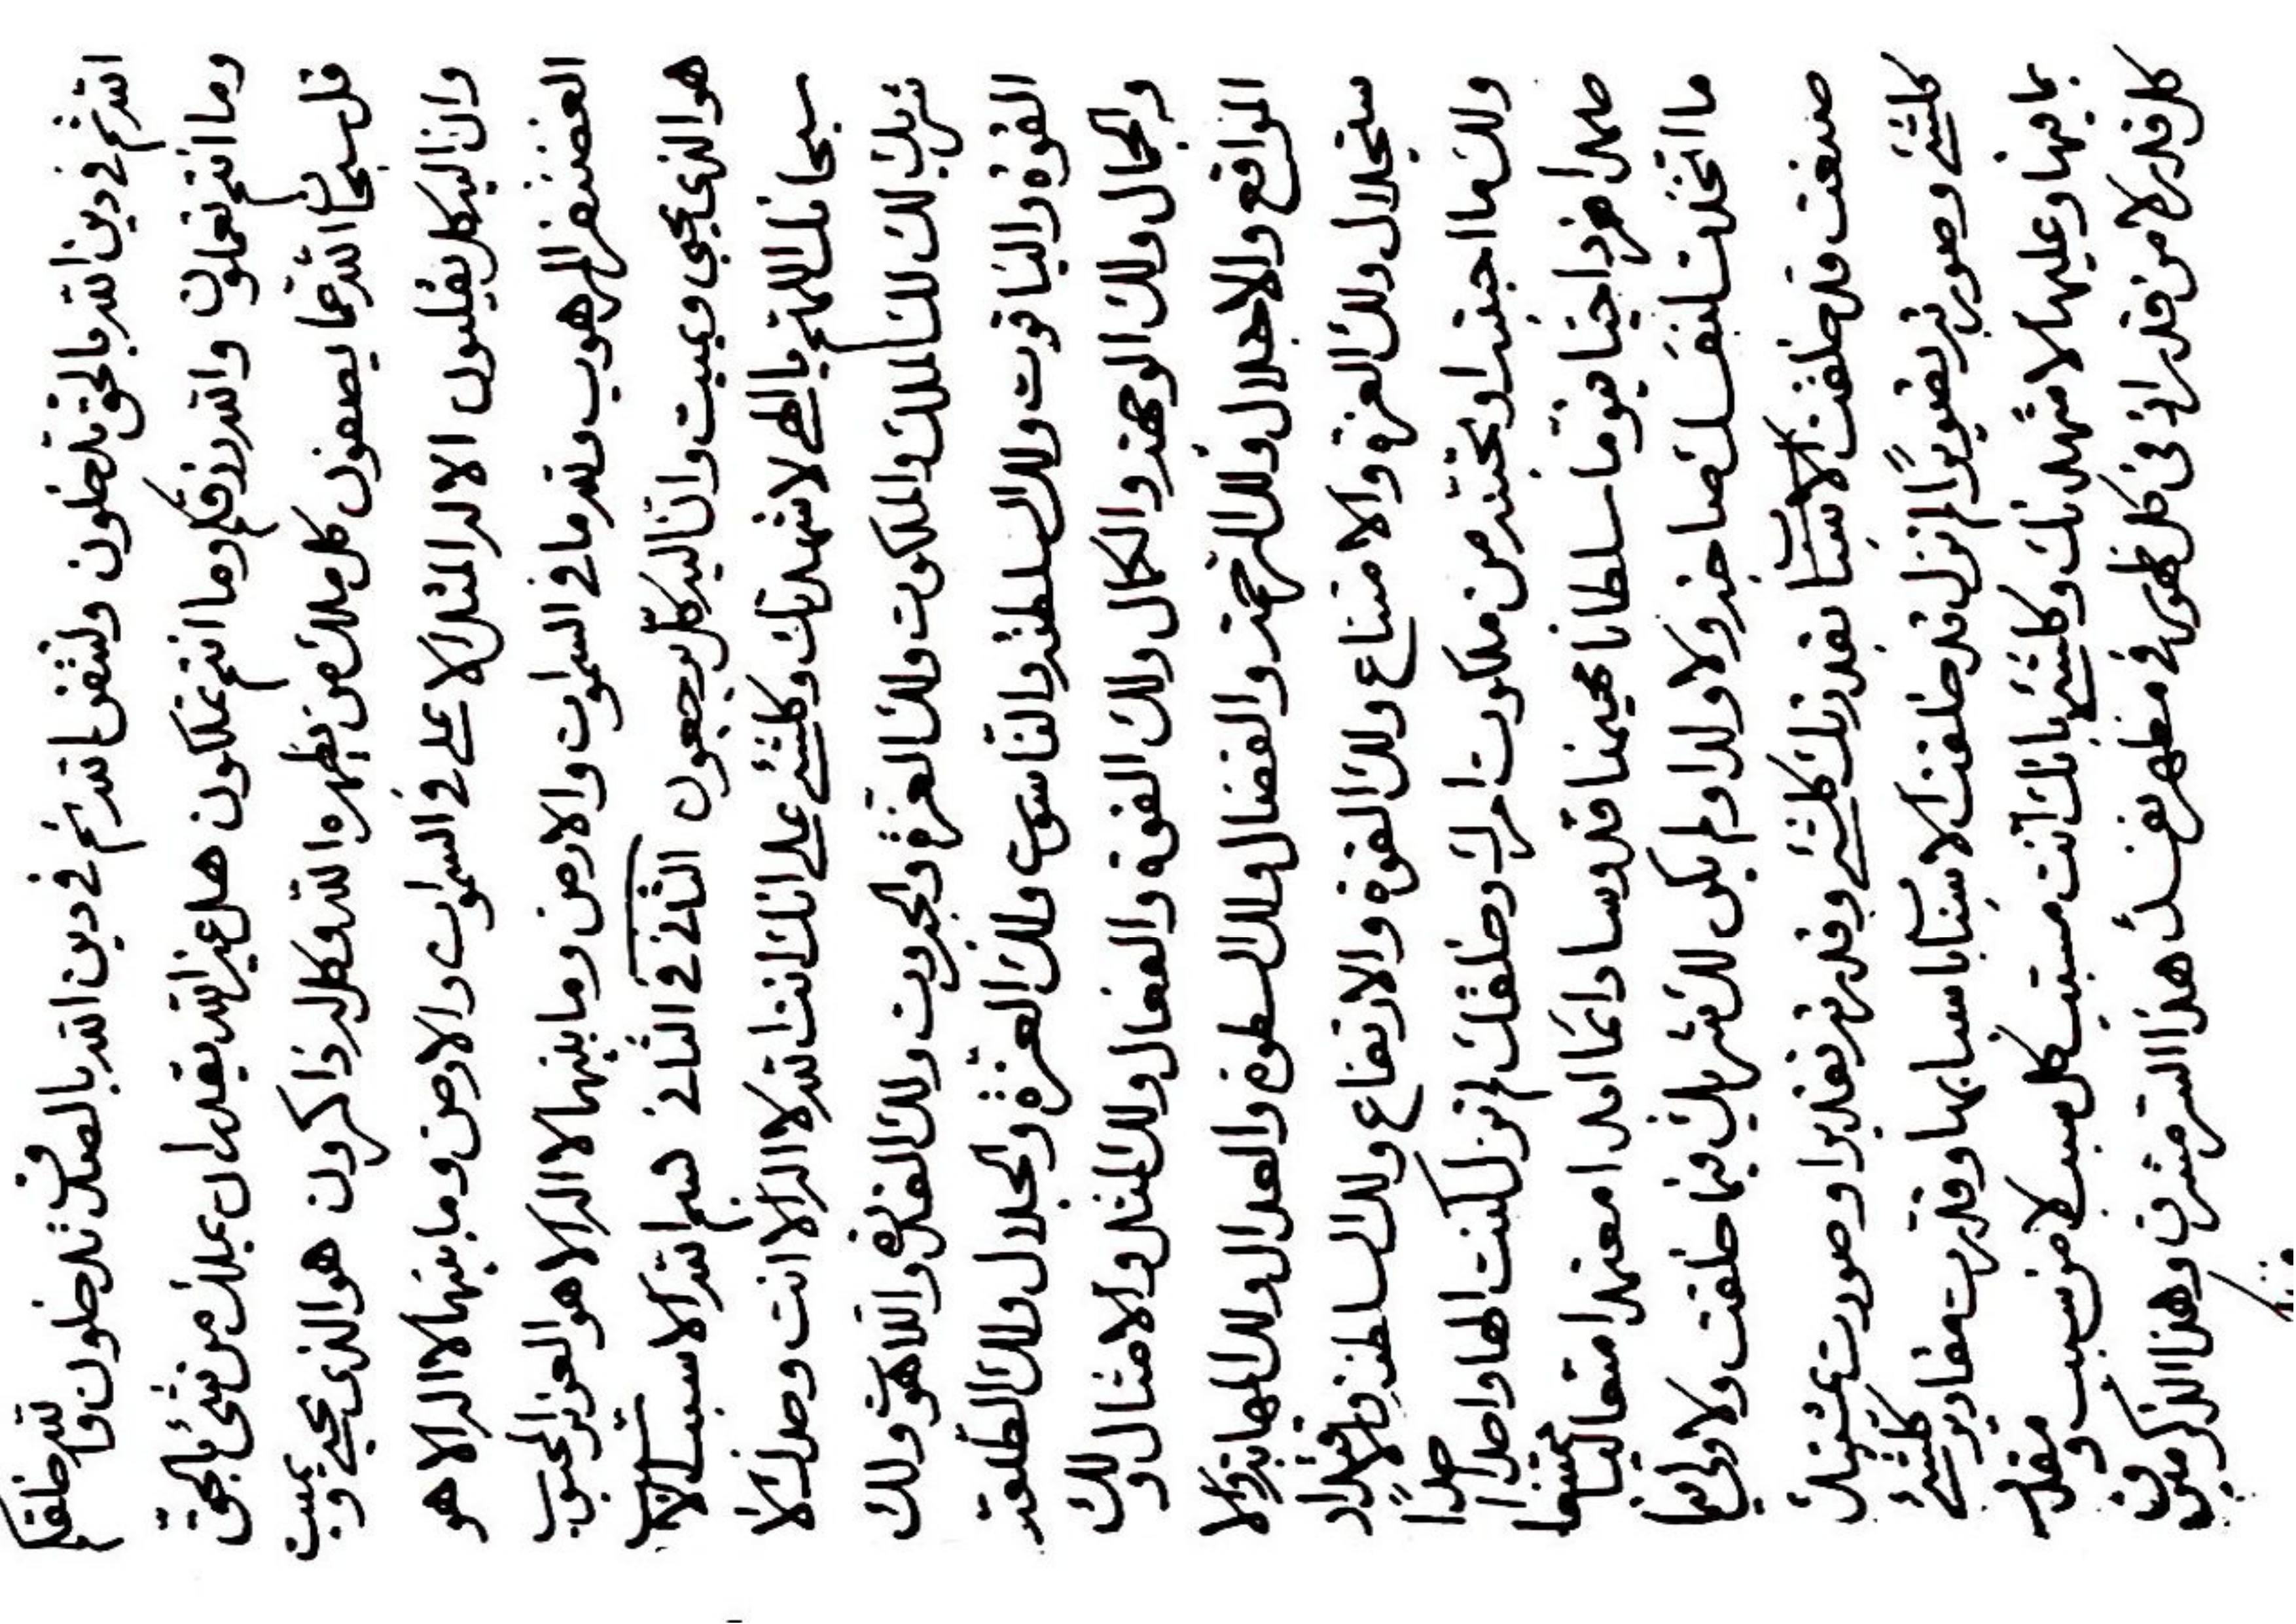 الله ثم في دين الله بالحق تدخلون ولتشفن الله ثم في دين الله بالصدق تدخلون والله خلقكم
وما انتم تعملون والله رزقكم وما انتم تملكون هل غير الله يقدر ان يملك من شئ بالحق
قل سبحان الله عما يصفون كل ملك من يظهره الله وكل له ذاكرون هو الذي يحيي ويميت
وان اليه كل يقلبون الا له المثل الاعلى في السموات والارض وما بينهما لا اله الا هو
العضنفر المرهوب ولله ما في السموات والارض وما بينهما لا اله الا هو العزيز المحبوب
هو الذي يحيي ويميت وان اليه كل يرجعون الثاني في الثاني بسم الله الاسبب الاسبب
سبحانك اللهم يا الهي لاشهدنك وكلشئ على انك انت الله لا اله الا انت وحدك لا
شريك لك لك الملك والملكوت ولك العزة والجبروت ولك القدرة واللاهوت ولك
القوة والياقوت ولك السلطنة والناسوت ولك العزة والجلال ولك الطلعة
والجمال ولك الوجهة والكمال ولك القوة والفعال ولك المثل والامثال ولك
المواقع والاجلال ولك الرحمة والفضال ولك السطوة والعدال ولك المهابة والا
ستجلال ولك العزة والامتناع ولك القوة والارتفاع ولك السلطنة والاقتدار
ولك ما احببته او تحبنه من ملكوت امرك وخلقك لم تزل كنت الها واحدا احدا
صمدا فردا حيا قيوما سلطانا مهيمنا قدوسا دائما ابدا معتمدا متعاليا ممتنعا
ما اتخذت لنفسك صاحبة ولا ولدا ولم يكن لك شريك فيما خلقت ولا ولي فيما
صنعت قد خلقت الاسباب بقدرتك كلشئ وقدرته تقديرا وصورت بمشيتك
كلشئ وصورته تصويرا لم تزل قد خلقت الاسباب باسبابها وقدرت مقادير كلشئ
بما فيها وعليها لاشهدنك وكلشئ بانك انت مسبب كل سبب لا من سبب ومقدر
كل قدر لا من قدر اذ في كل ظهور في مظهر نفسك هذا السر مشرق وهذا الذكر